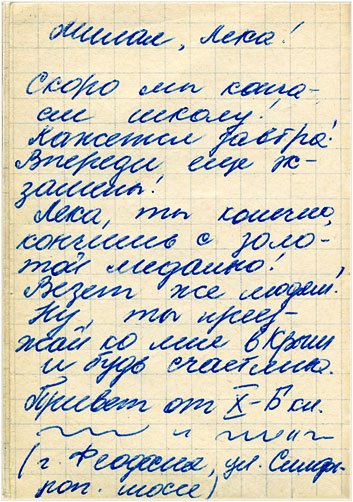 Милая, Лека!
Скоро мы конча-
ем школу!
Кажется завтра!
Впереди еще эк-
замены!
Лека, ты конечно,
кончишь с золо-
той медалью!
Везет же людям!
Ну, ты приез-
жай ко мне в Крым
и будь счастлива.
Привет от X-Б кл.
(г. Феодосия, ул. Симфе-
роп. шоссе)